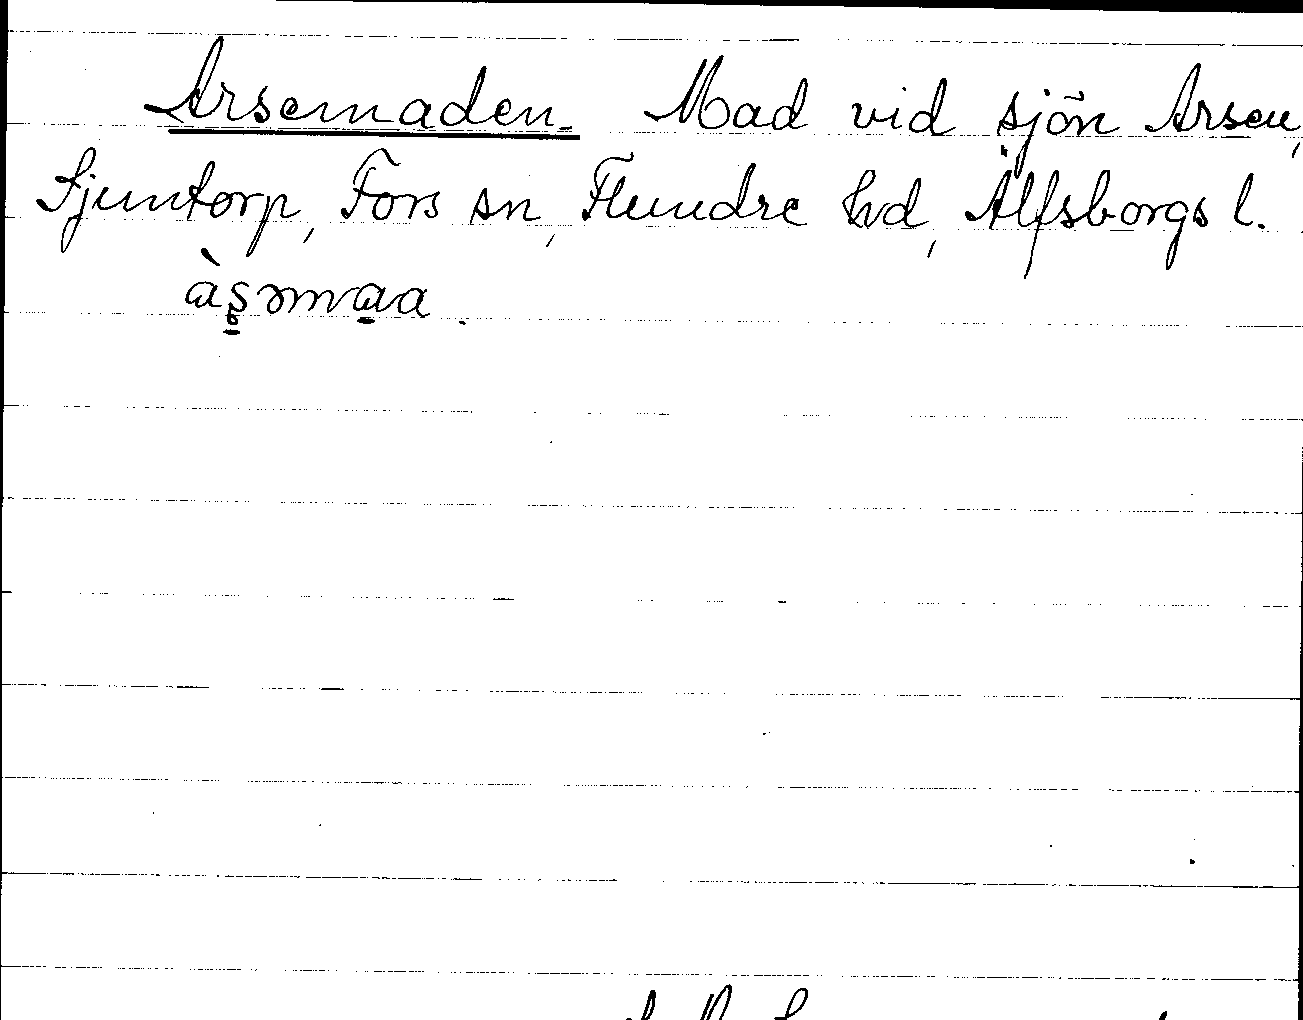 Arsemaden. Mad vid sjön Arsen,
Sjuntorp, Fors sn, Flundre hd, Älfsborgs l.
àṣəma̲a.